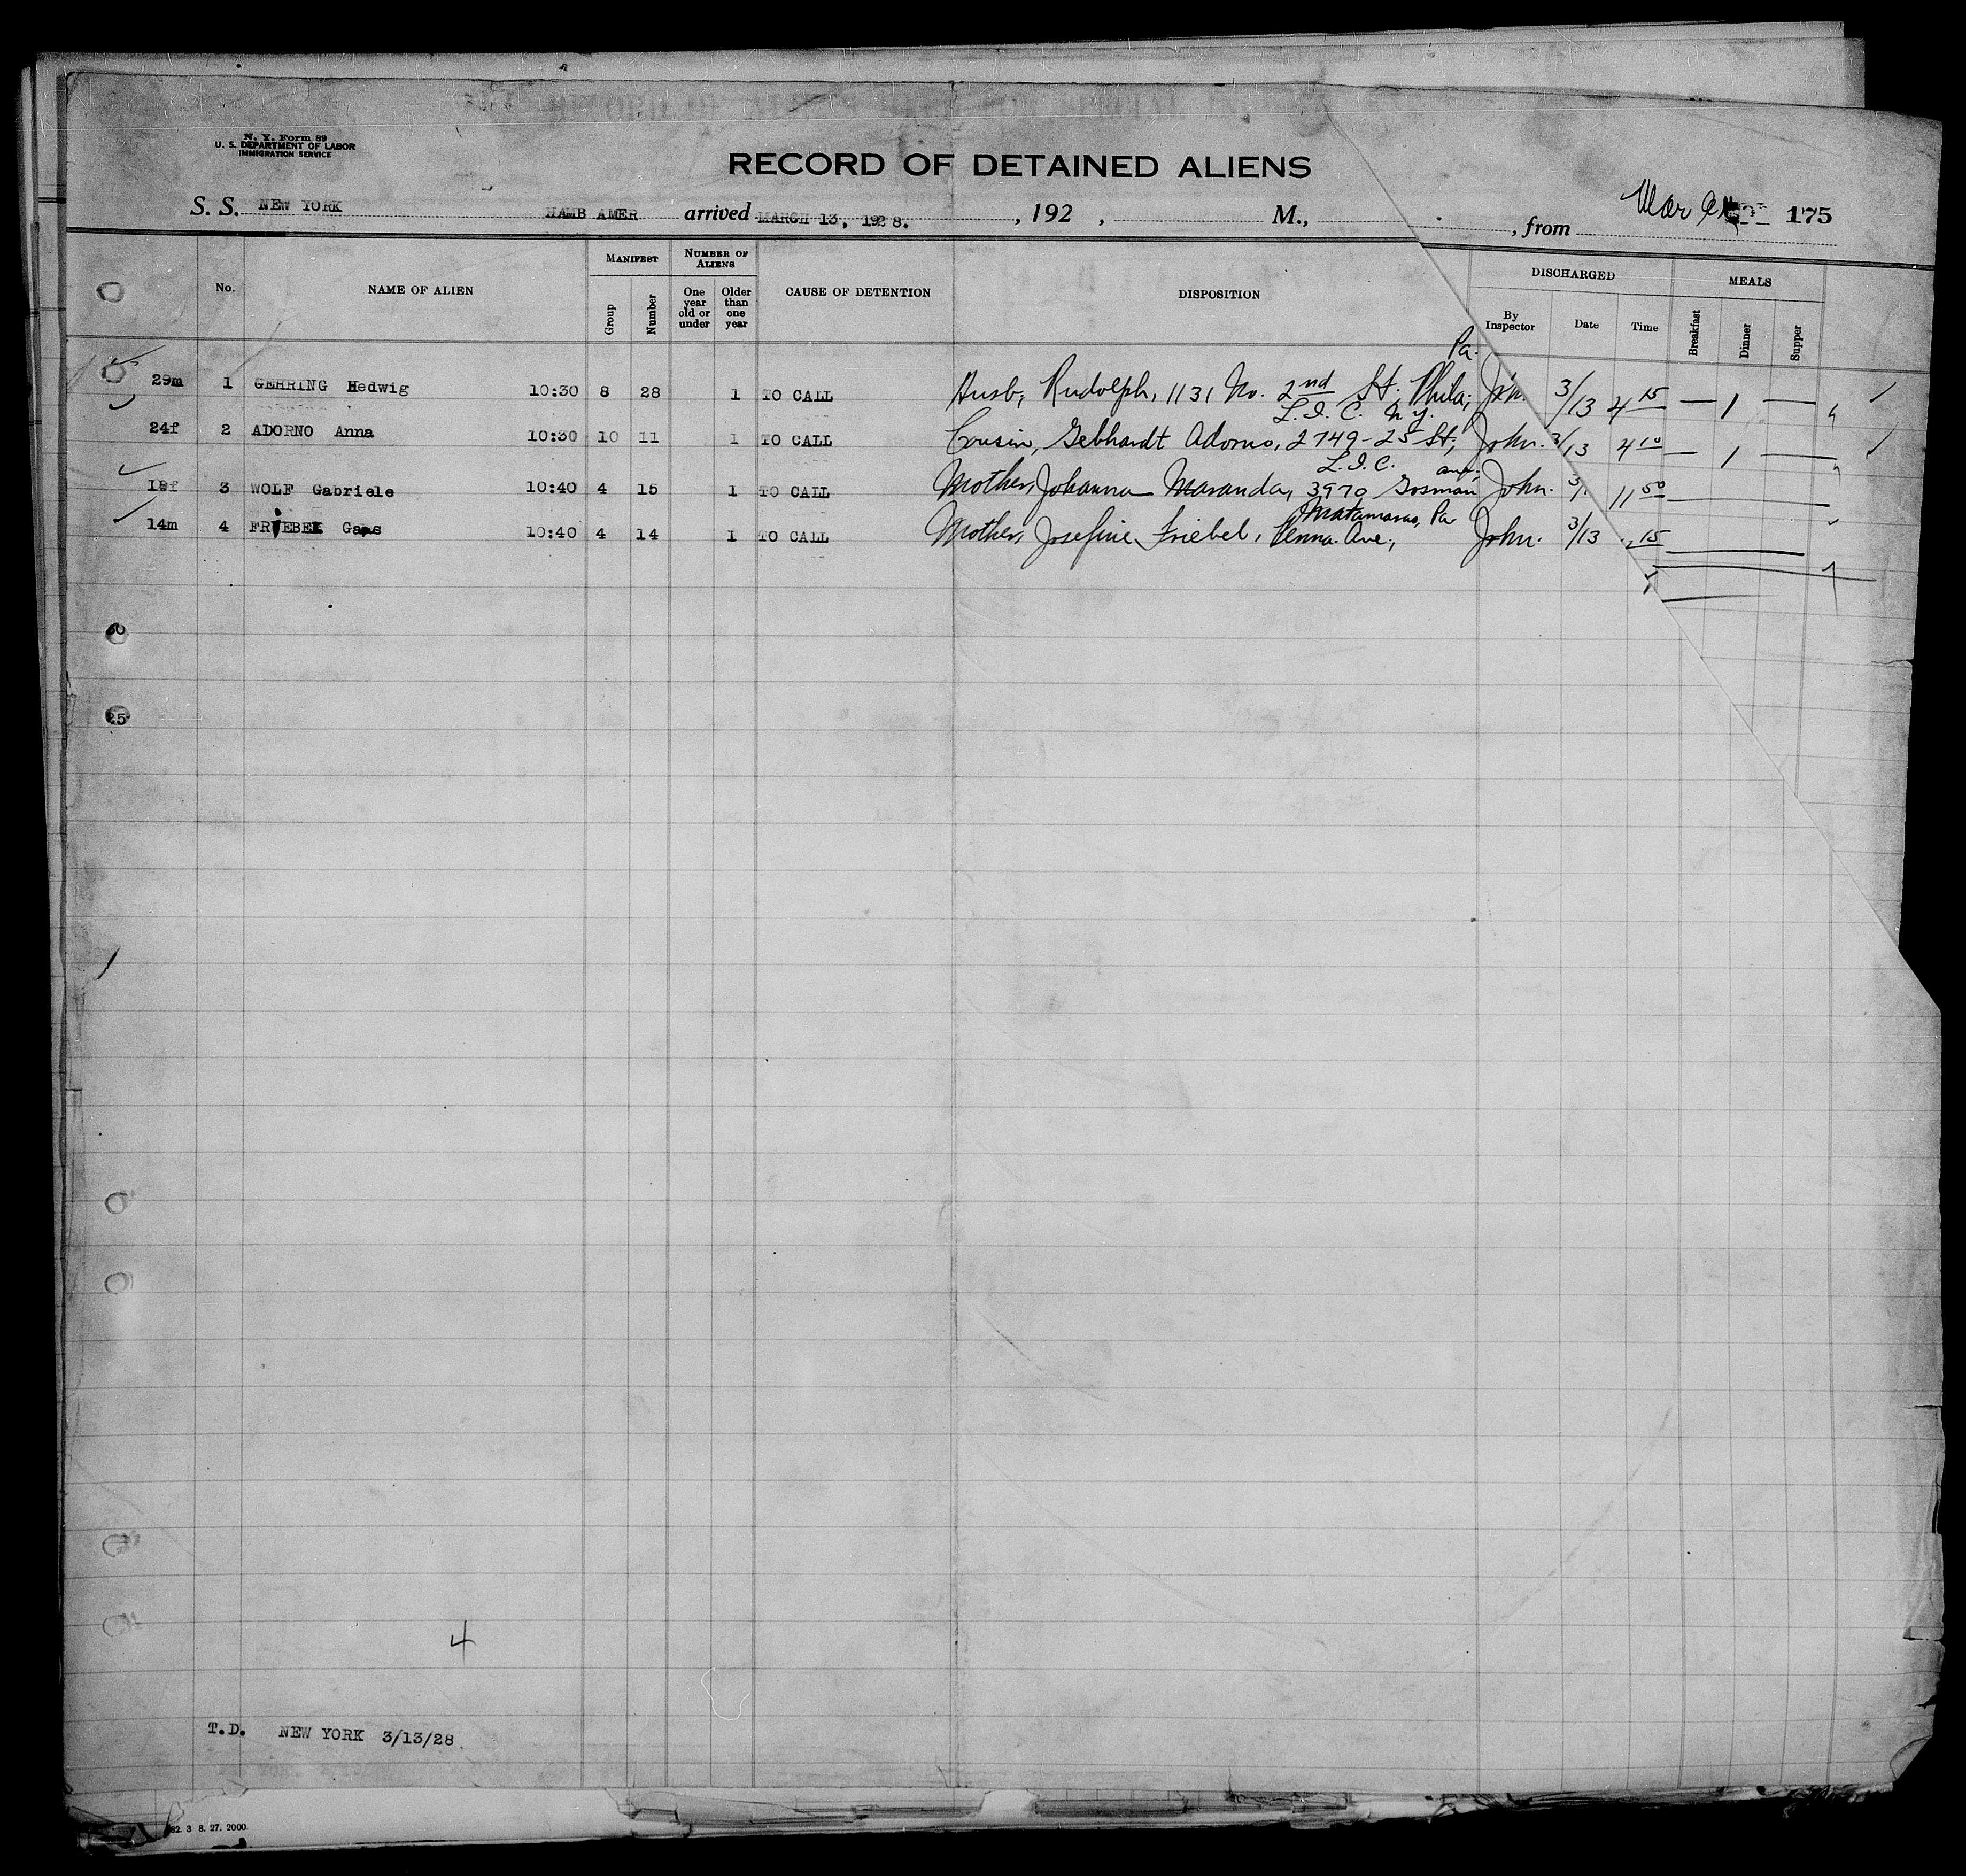 N. Y. Form 89
U. S. DEPARTMENT OF LABOR
IMMIGRATION SERVICE
RECORD OF DETAINED ALIENS
S. S. NEW YORK HAMB AMER arrived MARCH 13, 1928. , 192 , M., , from 175
No. NAME OF ALIEN MANIFEST Group Number NUMBER OF ALIENS One year old or under Older than one year CAUSE OF DETENTION DISPOSITION DISCHARGED By Inspector Date Time MEALS Breakfast Dinner Supper
Pa.
29m 1 GEHRING Hedwig 10:30 8 28 1 TO CALL Husb, Rudolph, 1131 No. 2nd St, Phila; Jhn. 3/13 4 15 — 1 —
L.I.C. N.Y.
24f 2 ADORNO Anna 10:30 10 11 1 TO CALL Cousin, Gebhardt Adorno, 2749-25 St, John. 3/13 4 10 — 1 —
L.I.C. ave.
18f 3 WOLF Gabriele 10:40 4 15 1 TO CALL Mother, Johanna Maranda, 3970 Gosman John. 3/1 11 50
Matamoras, Pa
14m 4 FRIEBEL 10:40 4 14 1 TO CALL Mother, Josefine Friebel, Penna. Ave., John. 3/13 15
30
25
4
T.D. NEW YORK 3/13/28
82 3 8. 27. 2000